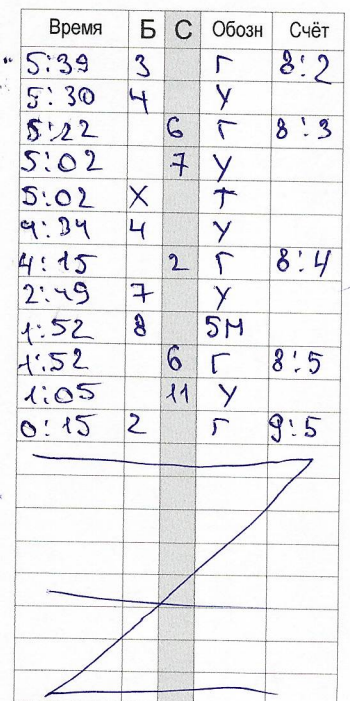 Время Б С Обозн Счёт
5:39 3 Г 8:2
5:30 4 У
5:22 6 Г 8:3
5:02 7 У
5:02 X Т
4:34 4 У
4:15 2 Г 8:4
2:49 7 У
1:52 8 5М
1:52 6 Г 8:5
1:05 11 У
0:15 2 Г 9:5